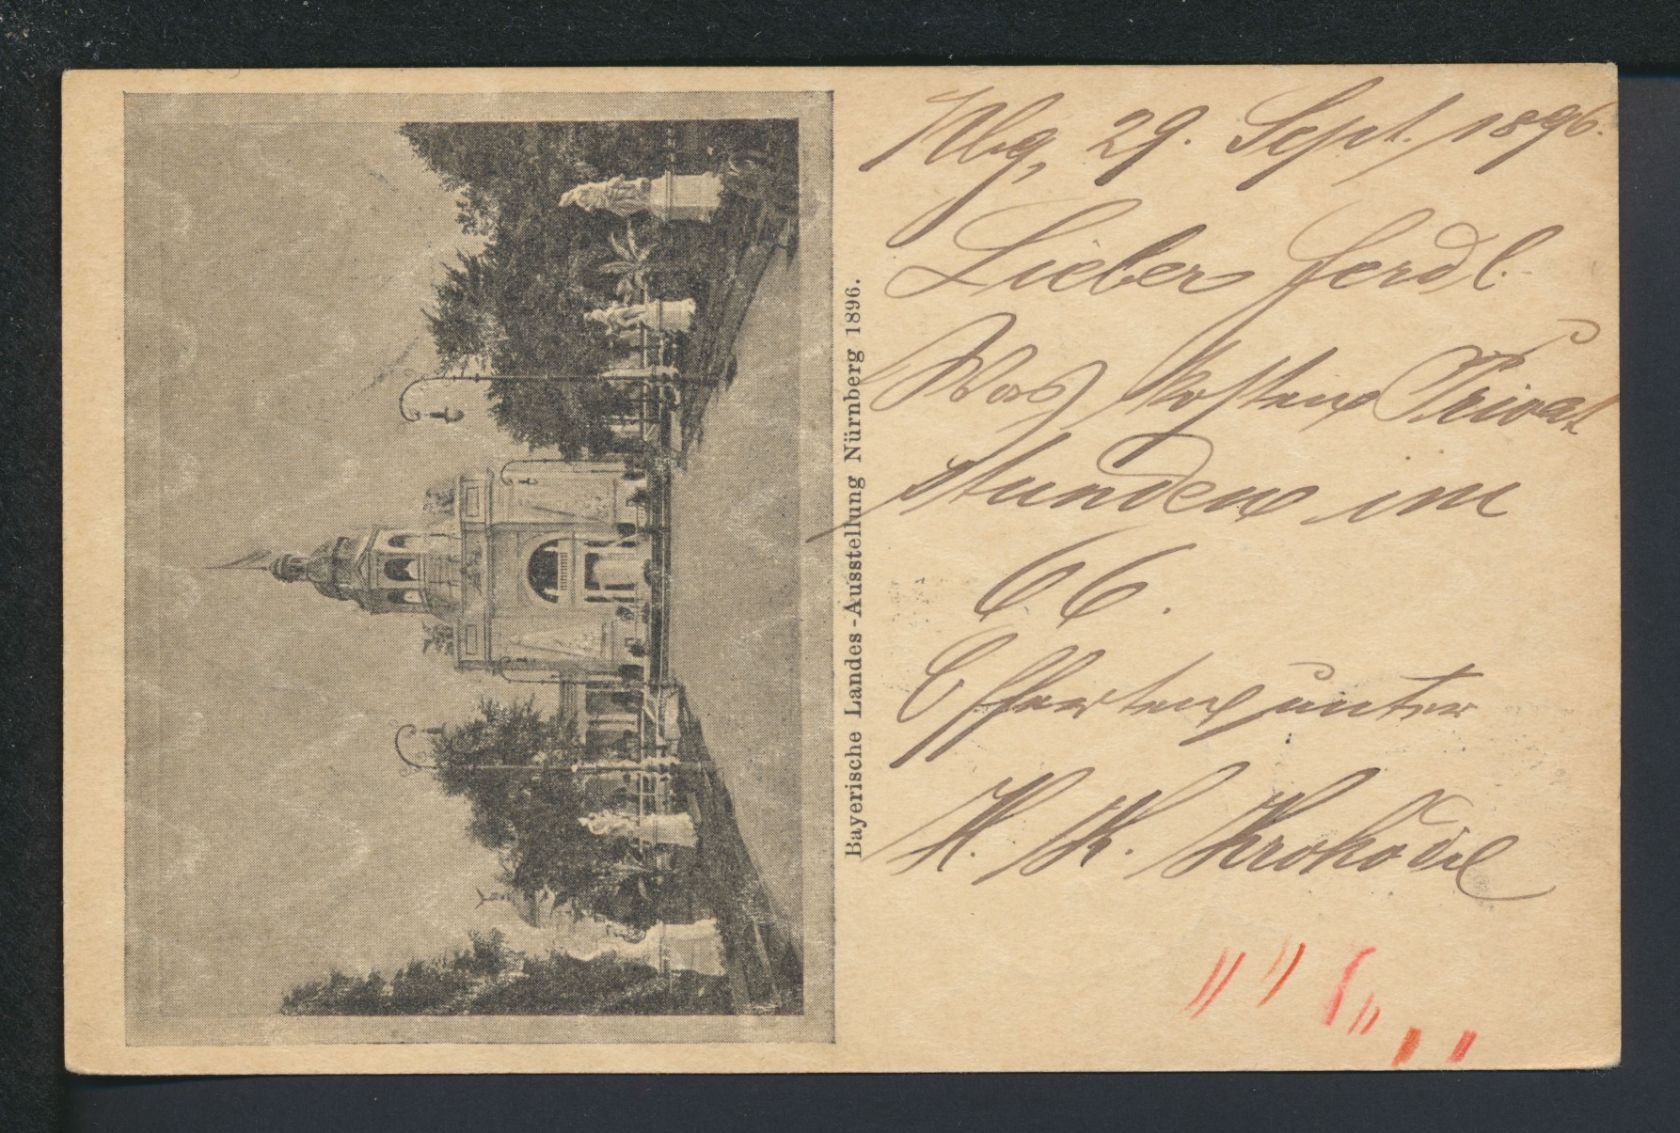 Bayerische Landes-Ausstellung Nürnberg 1896.
Nbg, 29. Sept. 1896.
Lieber Ferdl.
Was kosten Privat
stunden im
66.
Offerten unter
K. K. Krokodil